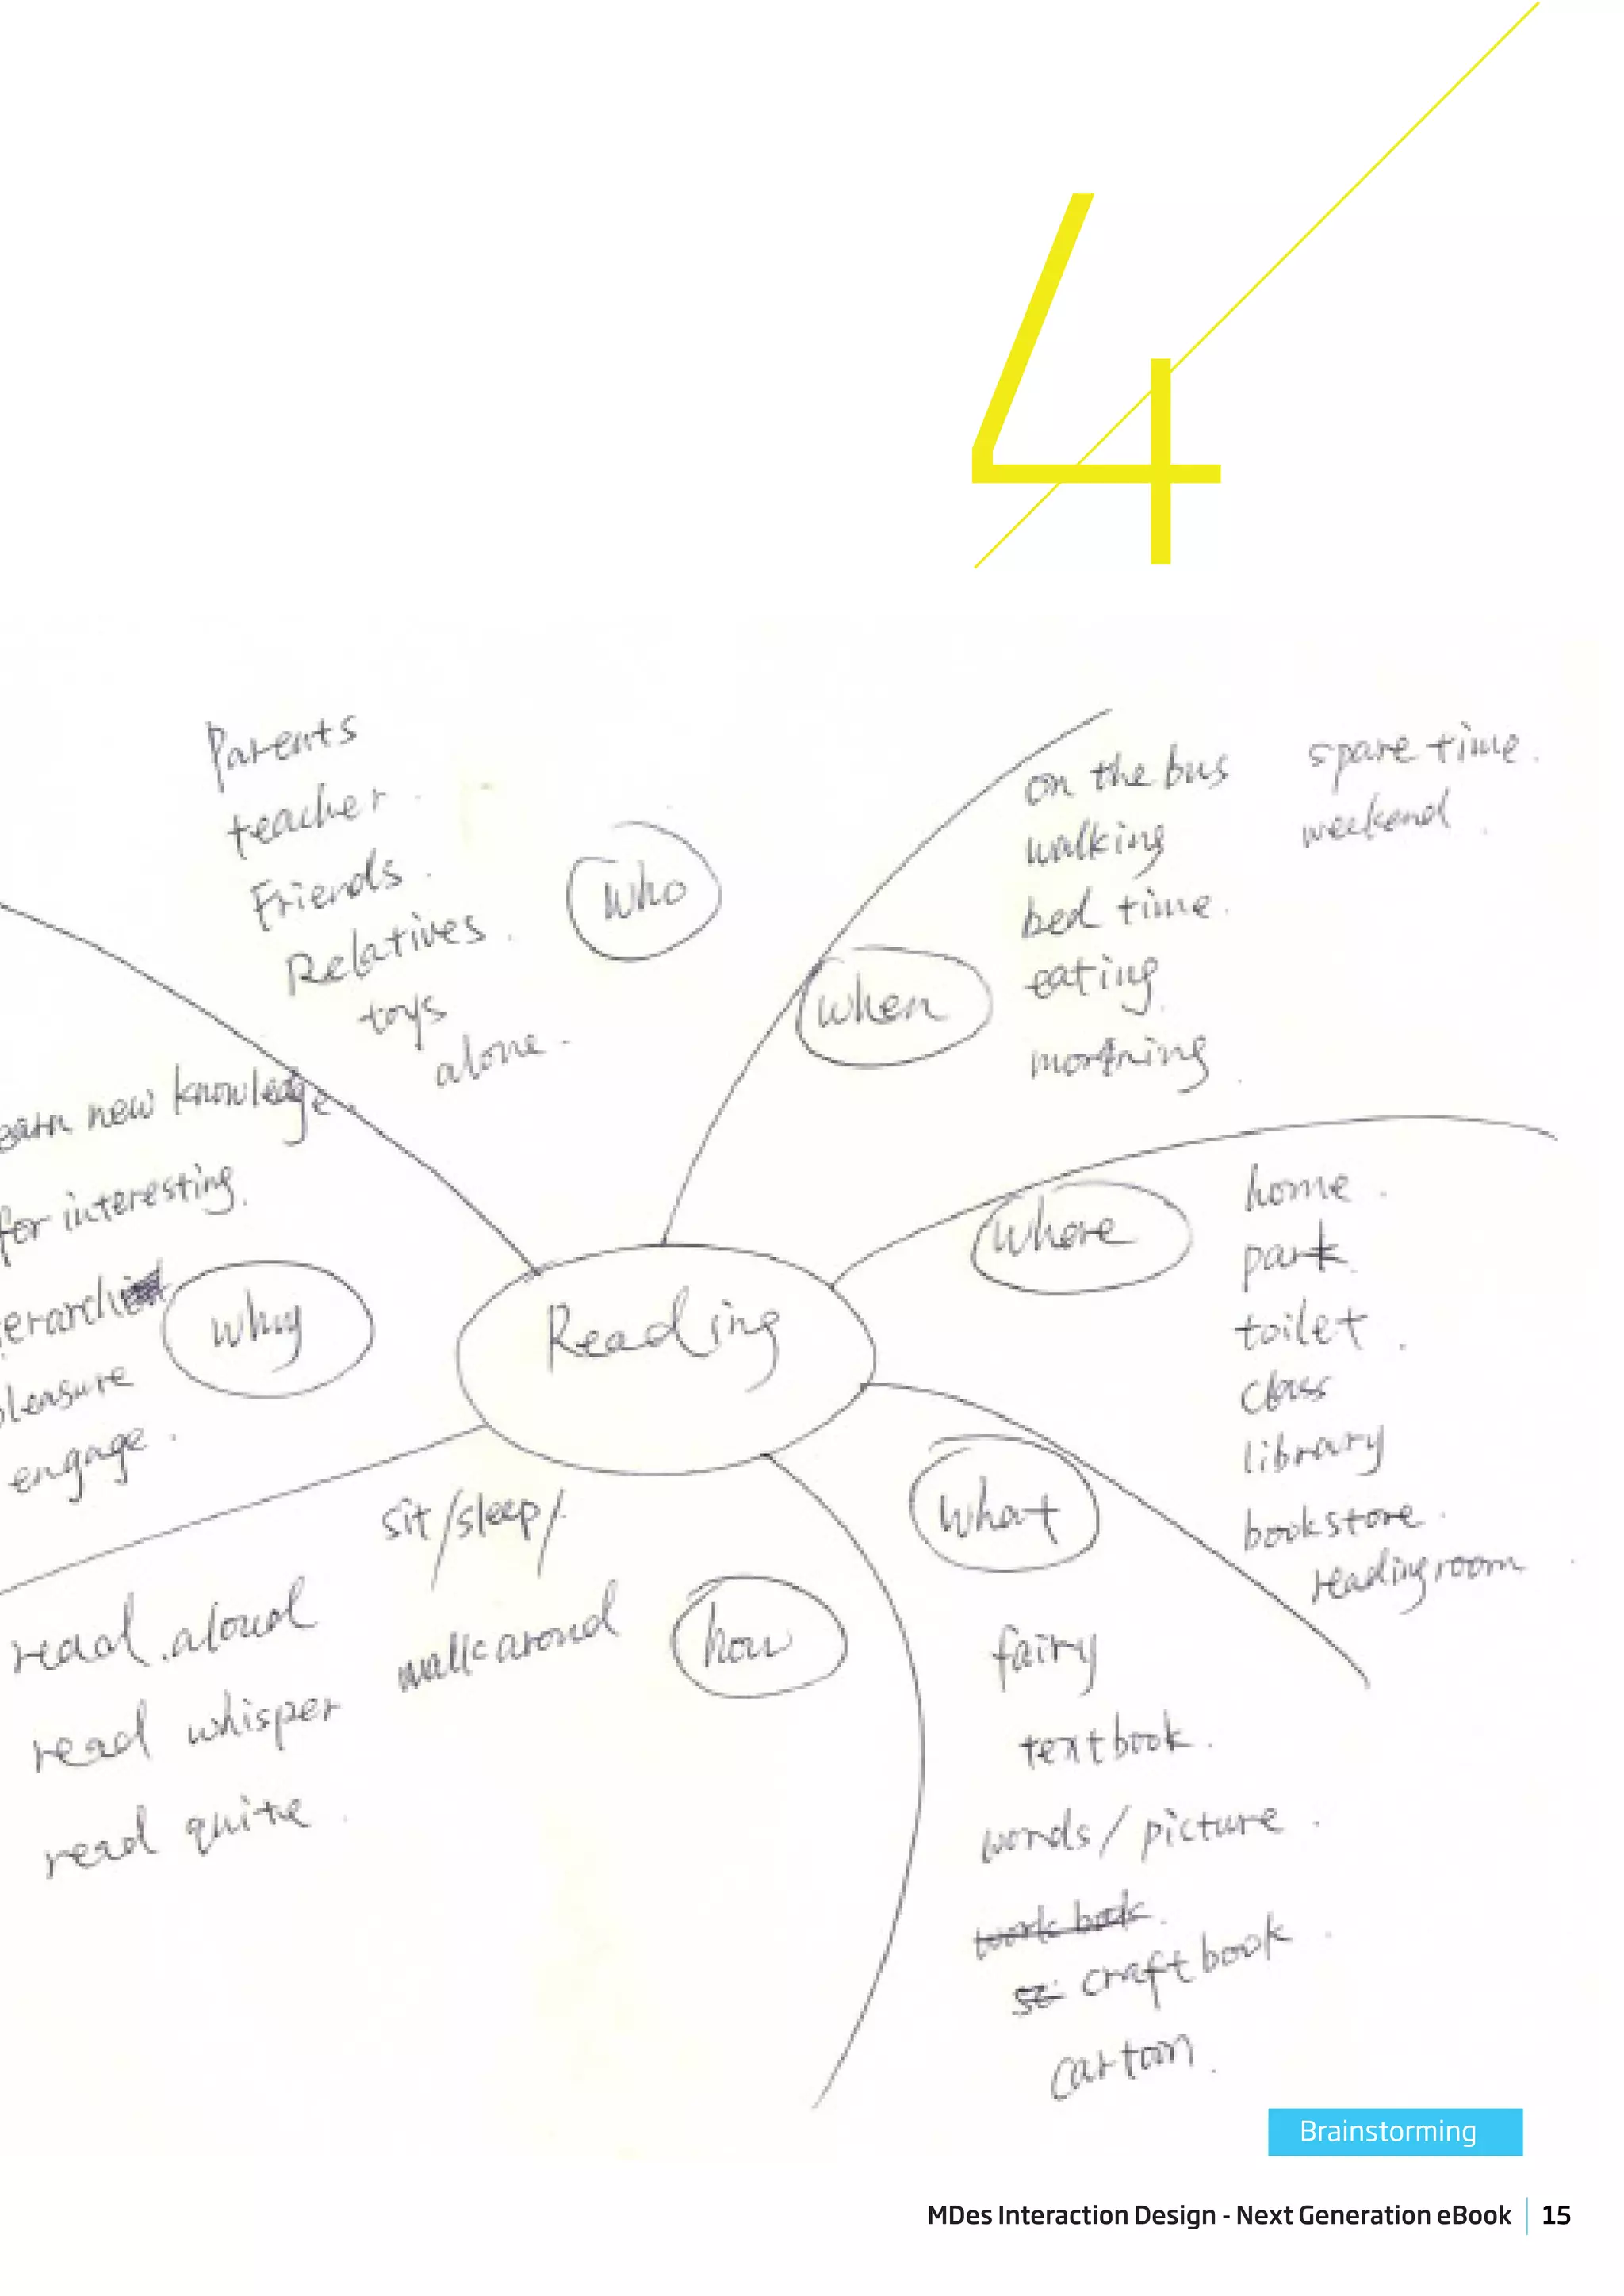 4
Parents
teacher.
Friends.
Relatives.
toys
alone.
who
when
on the bus
walking
bed time.
eating.
morning.
spare time.
weekend.
where
home.
park.
toilet.
class
library
bookstore.
reading room.
earn new knowledge.
for interesting.
pleasure
engage.
why
Reading
what
fairy
textbook.
words / picture.
work book.
craft book.
cartoon.
how
sit / sleep /
walk around
read aloud
read whisper
read quite.
Brainstorming
MDes Interaction Design - Next Generation eBook 15